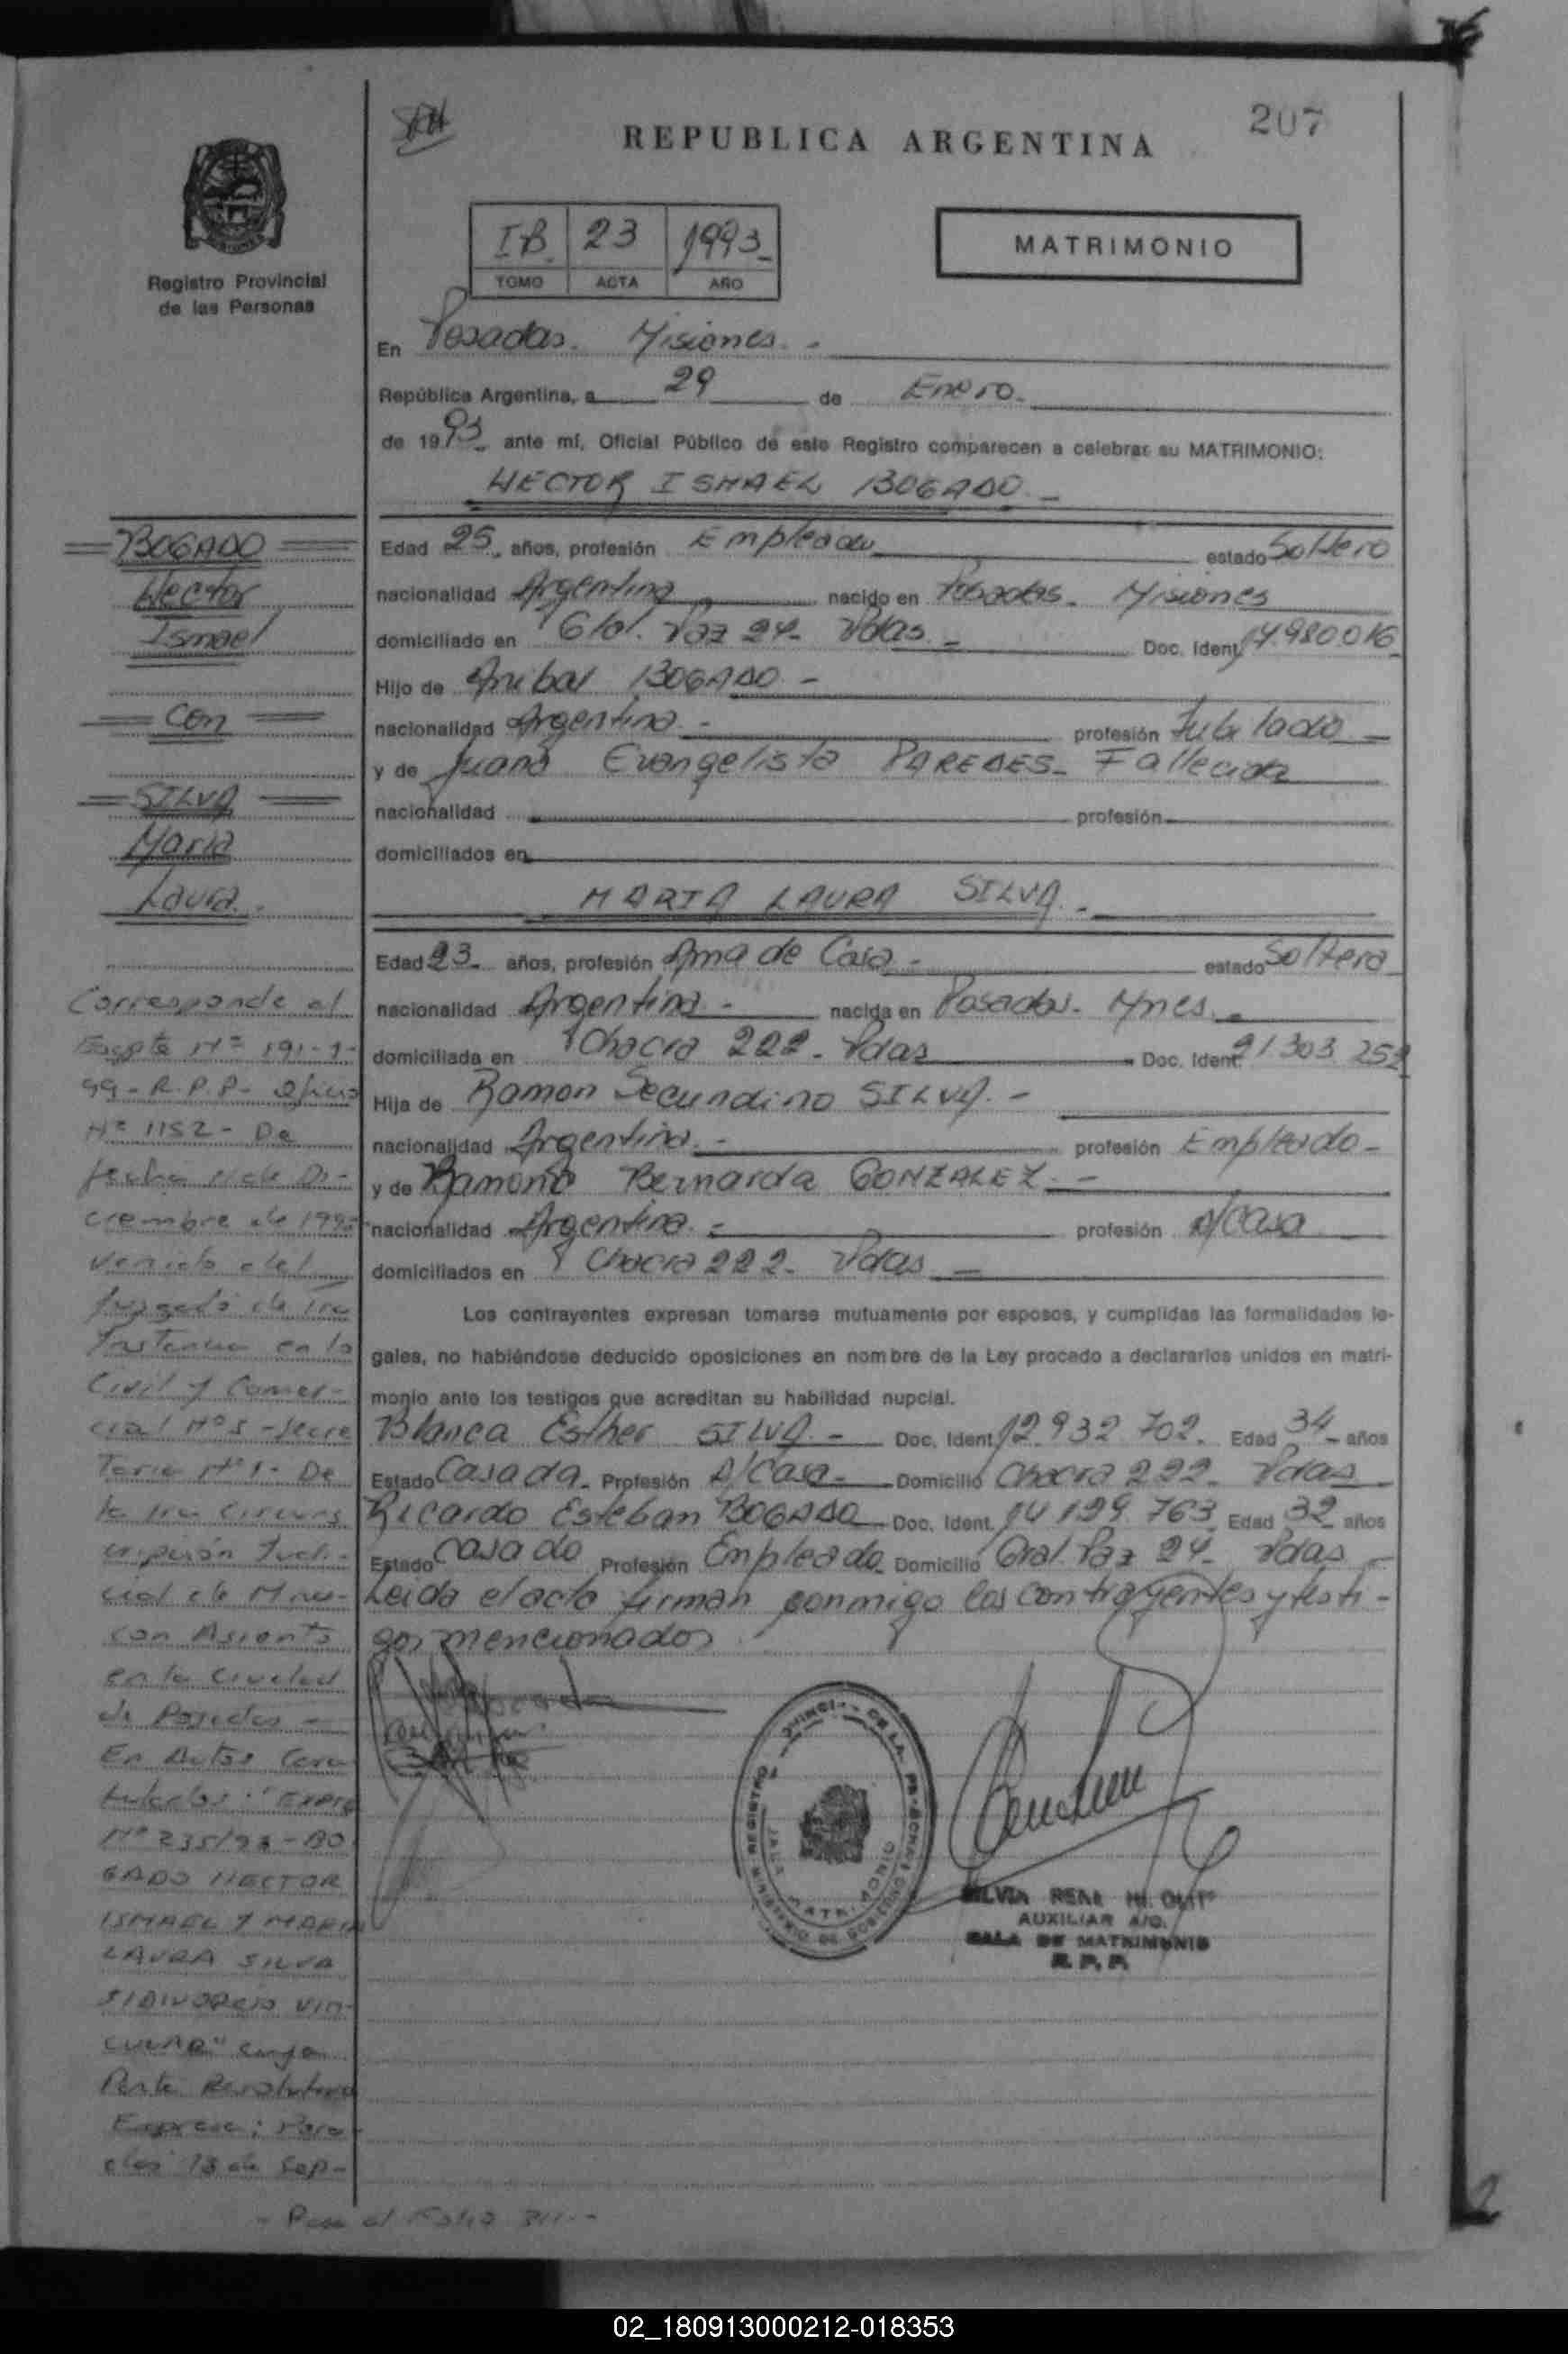 207
REPUBLICA ARGENTINA
IB 23 1993
TOMO ACTA AÑO
MATRIMONIO
Registro Provincial
de las Personas
En Posadas. Misiones. -
República Argentina, a 29 de Enero.
de 1993 ante mí, Oficial Público de este Registro comparecen a celebrar su MATRIMONIO:
HECTOR ISMAEL BOGADO. -
Edad 25 años, profesión Empleado estado Soltero
nacionalidad Argentina nacido en Posadas. Misiones
domiciliado en Gral. Paz 24- Pdas. - Doc. Ident. 17.980.016
Hijo de Anibal BOGADO -
nacionalidad Argentina. - profesión Jubilado -
y de Juana Evangelista PAREDES- Fallecida
nacionalidad profesión
domiciliados en
MARIA LAURA SILVA. -
Edad 23 años, profesión Ama de Casa - estado Soltera
nacionalidad Argentina. - nacida en Posadas. Mnes. -
domiciliada en Chacra 222- Pdas Doc. Ident. 21.303.252
Hija de Ramon Secundino SILVA. -
nacionalidad Argentina. - profesión Empleado -
y de Ramona Bernarda GONZALEZ. -
nacionalidad Argentina. - profesión A/Casa
domiciliados en Chacra 222- Pdas -
Los contrayentes expresan tomarse mutuamente por esposos, y cumplidas las formalidades le-
gales, no habiéndose deducido oposiciones en nombre de la Ley procedo a declararlos unidos en matri-
monio ante los testigos que acreditan su habilidad nupcial.
Blanca Esther SILVA. - Doc. Ident. 12.932.702. Edad 34 años
Estado Casada. Profesión A/Casa- Domicilio Chacra 222- Pdas
Ricardo Esteban BOGADO Doc. Ident. 14.129.763 Edad 32 años
Estado Casado Profesión Empleado Domicilio Gral. Paz 24- Pdas -
Leida el acta firman conmigo los contrayentes y testi-
gos mencionados
AUXILIAR A/C.
SALA DE MATRIMONIO
R. P. P.
BOGADO
Hector
Ismael
Con
SILVA
Maria
Laura.
Corresponde al
Expte Nº 191-1-
99- R.P.P- Oficio
Nº 1152- De
fecha 11 de Di-
ciembre de 199
venido del
Juzgado de 1ra
Instancia en lo
Civil y Comer-
cial Nº 5 -Secre
Taria Nº 1- De
la 1ra Circuns
cripción Judi-
cial de Mnes-
con Asiento
en la Ciudad
de Posadas -
En Autos Cara
tulados: "Expte
Nº 235/98 -BO
GADO HECTOR
ISMAEL Y MARIA
LAURA SILVA
S/DIVORCIO VIN-
CULAR" cuya
Parte Resolutiva
Expresa: Posa
das 18 de Sep-
- Pasa al Folio
02_180913000212-018353